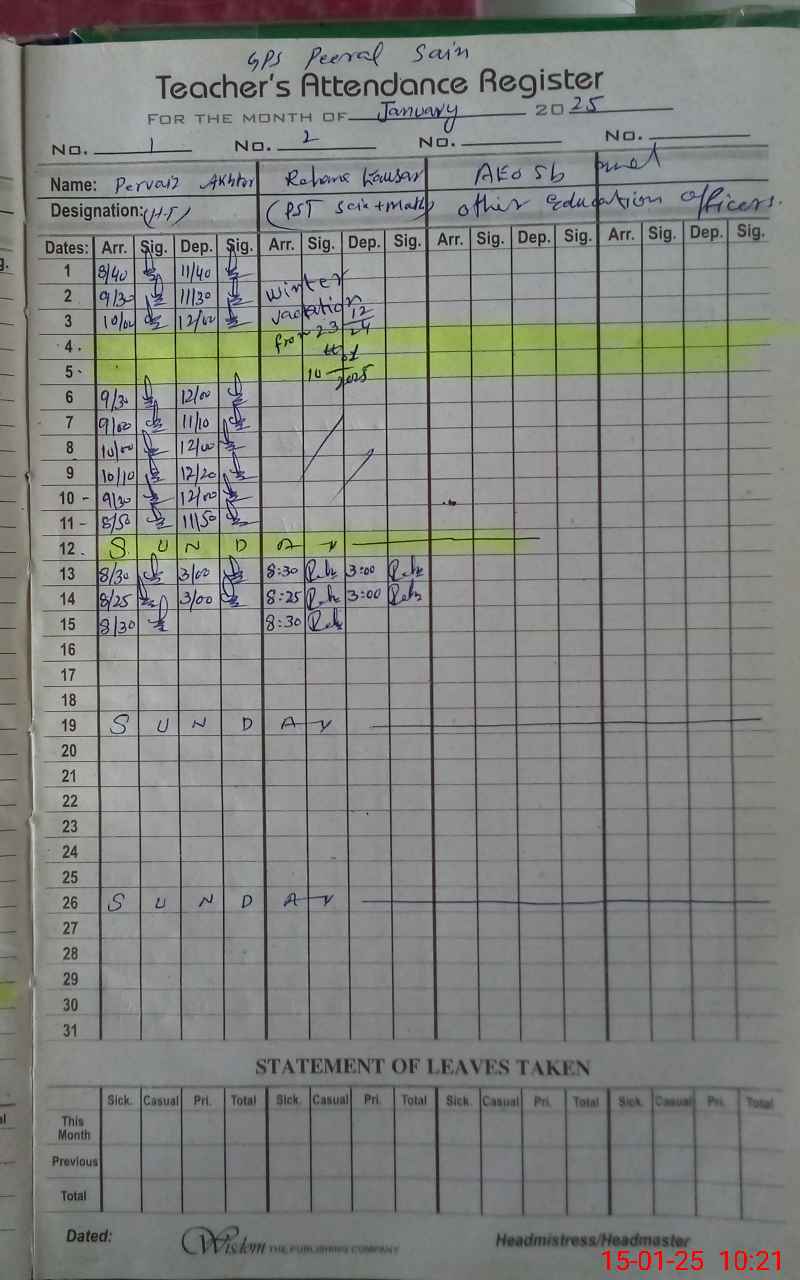 GPS Peeral Sain
Teacher's Attendance Register
FOR THE MONTH OF January 2025
No. 1 No. 2 No. No.
Name: Pervaiz Akhtar Rehana Kausar AEO Sb and
Designation: (HT) (PST Scie+Math) other Education officers.
Dates: Arr. Sig. Dep. Sig. Arr. Sig. Dep. Sig. Arr. Sig. Dep. Sig. Arr. Sig. Dep. Sig.
1 8/40 11/40
2 9/30 11/30 Winter
3 10/00 12/00 vacation
4. from 23 12/24
5. to 10 01/2025
6 9/30 12/00
7 9/00 11/10
8 10/00 12/00
9 10/10 12/20
10 - 9/30 12/00
11 - 8/50 11/50
12. S U N D A Y
13 8/30 3/00 8:30 3:00
14 8/25 3/00 8:25 3:00
15 8/30 8:30
16
17
18
19 S U N D A Y
20
21
22
23
24
25
26 S U N D A Y
27
28
29
30
31
STATEMENT OF LEAVES TAKEN
Sick. Casual Pri. Total Sick. Casual Pri. Total Sick. Casual Pri. Total Sick. Casual Pri. Total
This Month
Previous
Total
Dated: Wisdom THE PUBLISHING COMPANY Headmistress/Headmaster
15-01-25 10:21